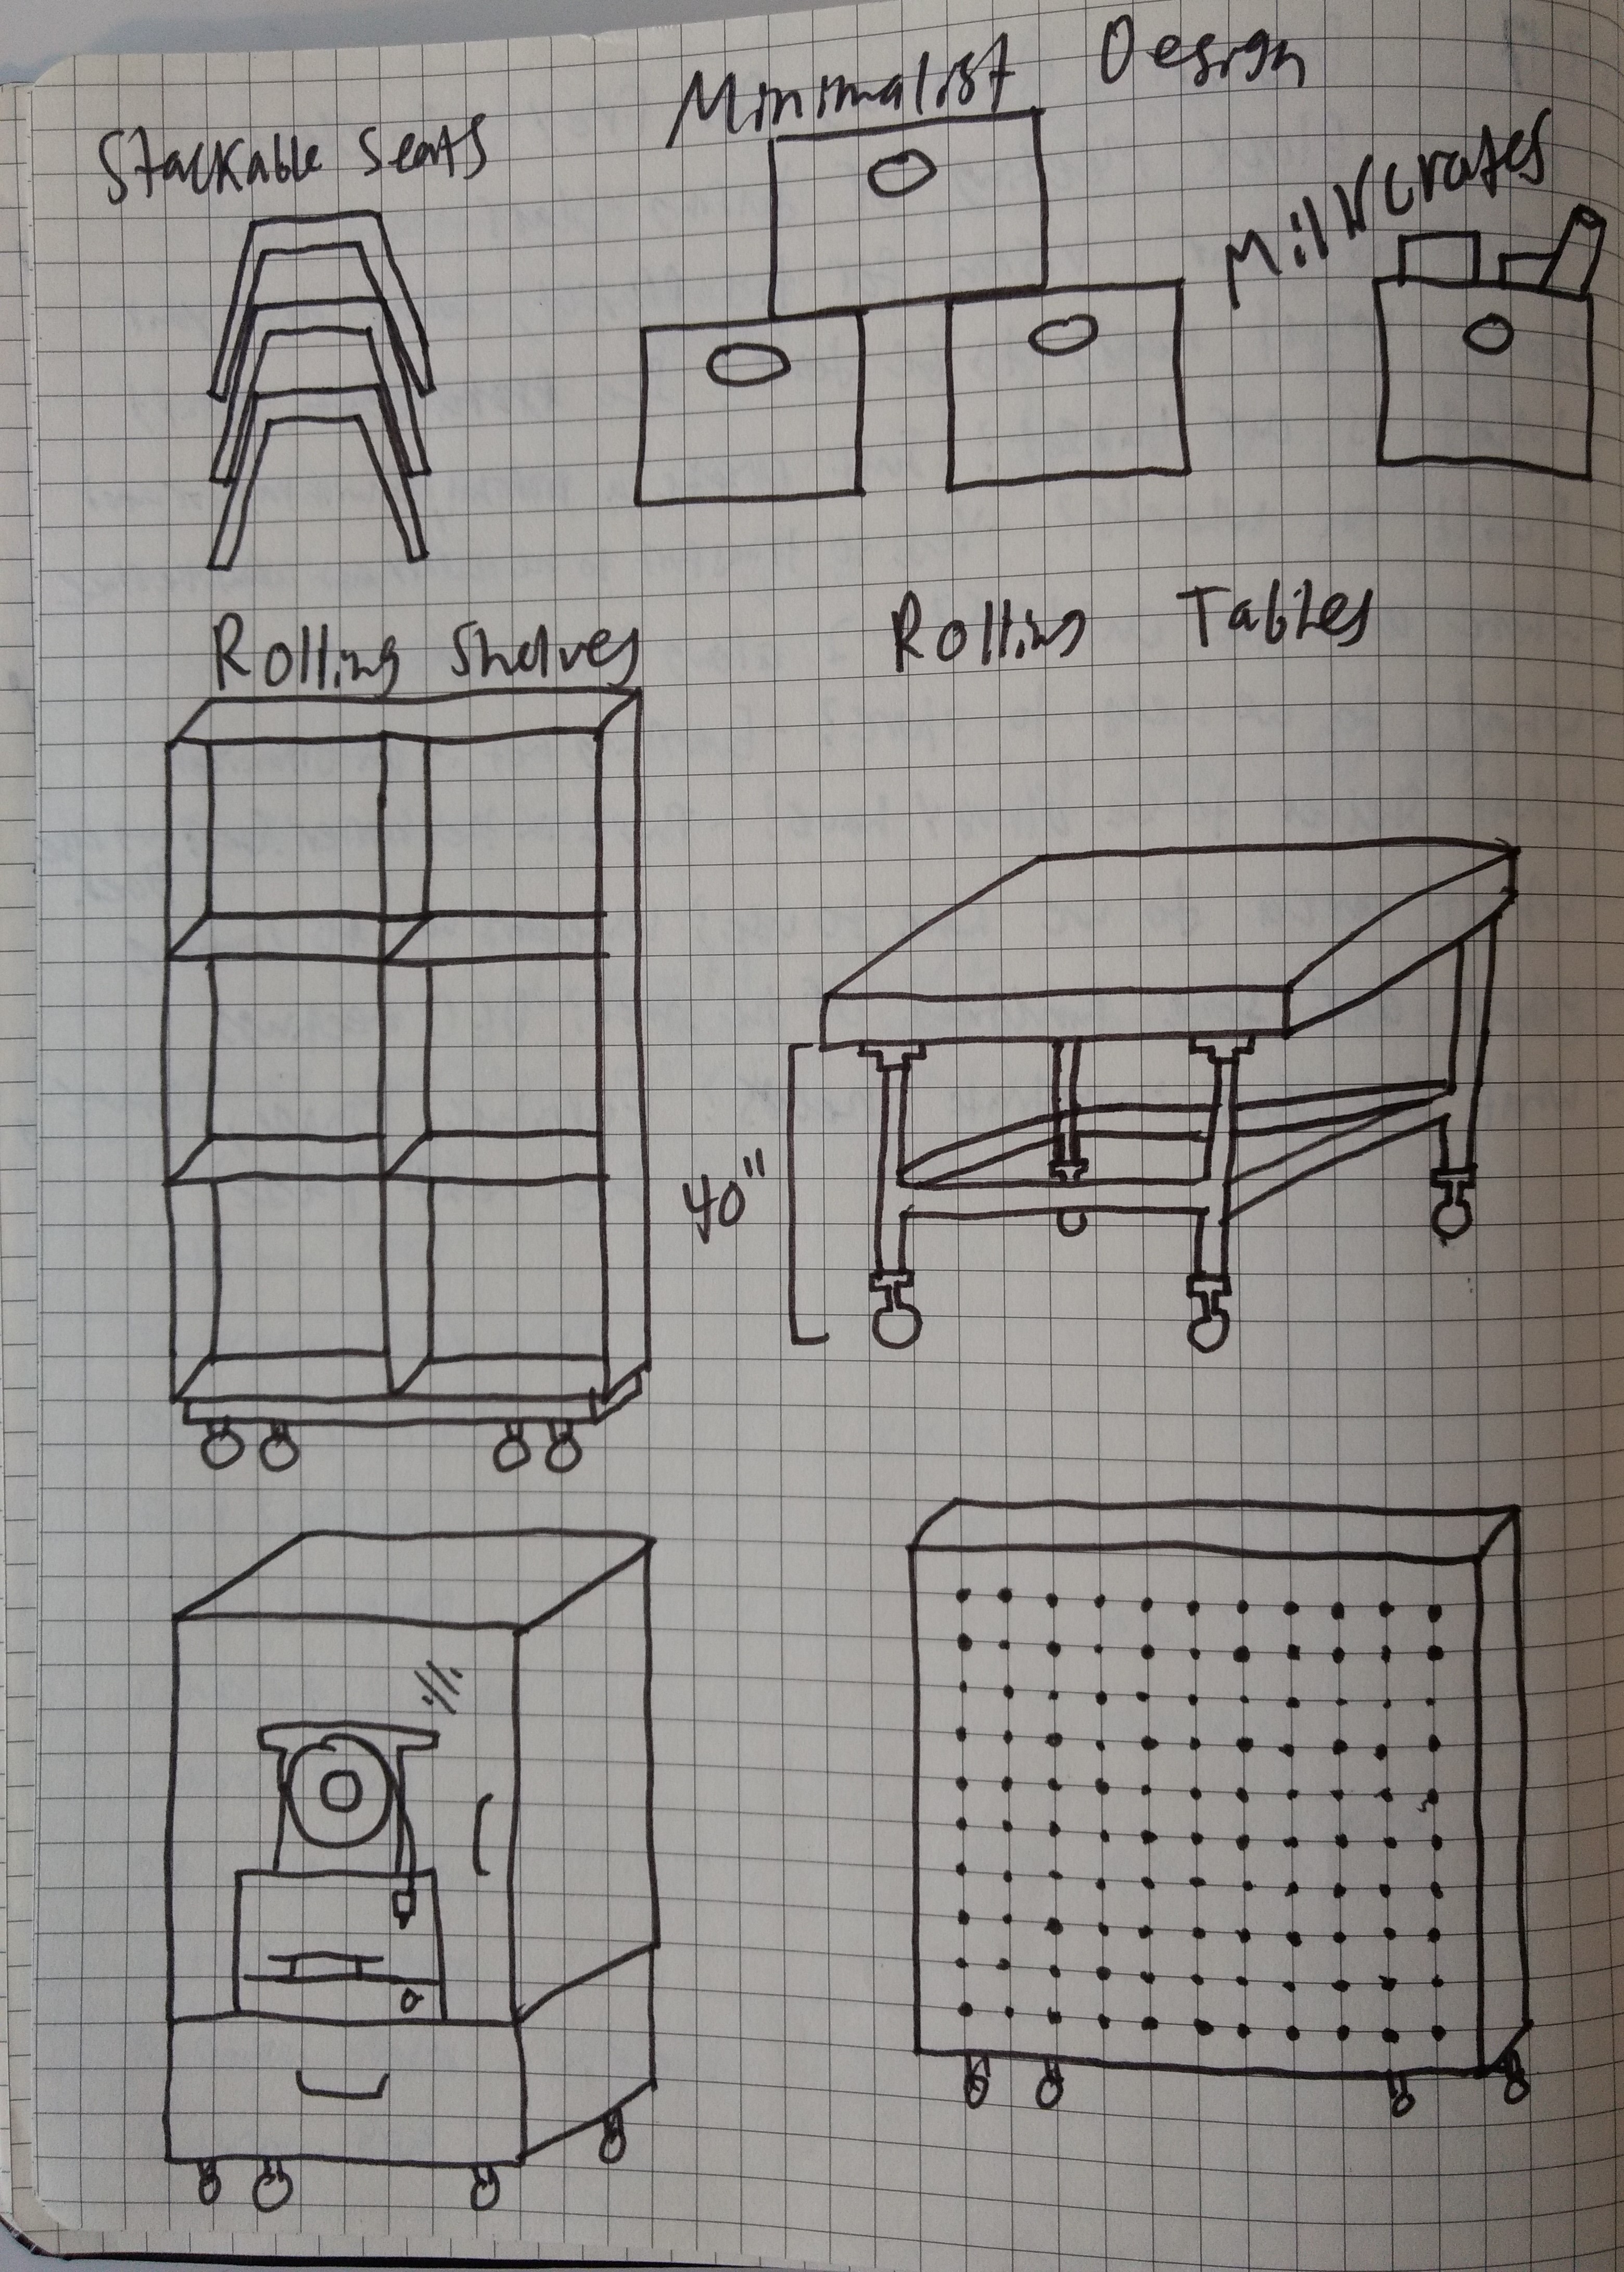 Minimalist Design
Stackable Seats
Milk crates
Rolling Shelves
Rolling Tables
40"